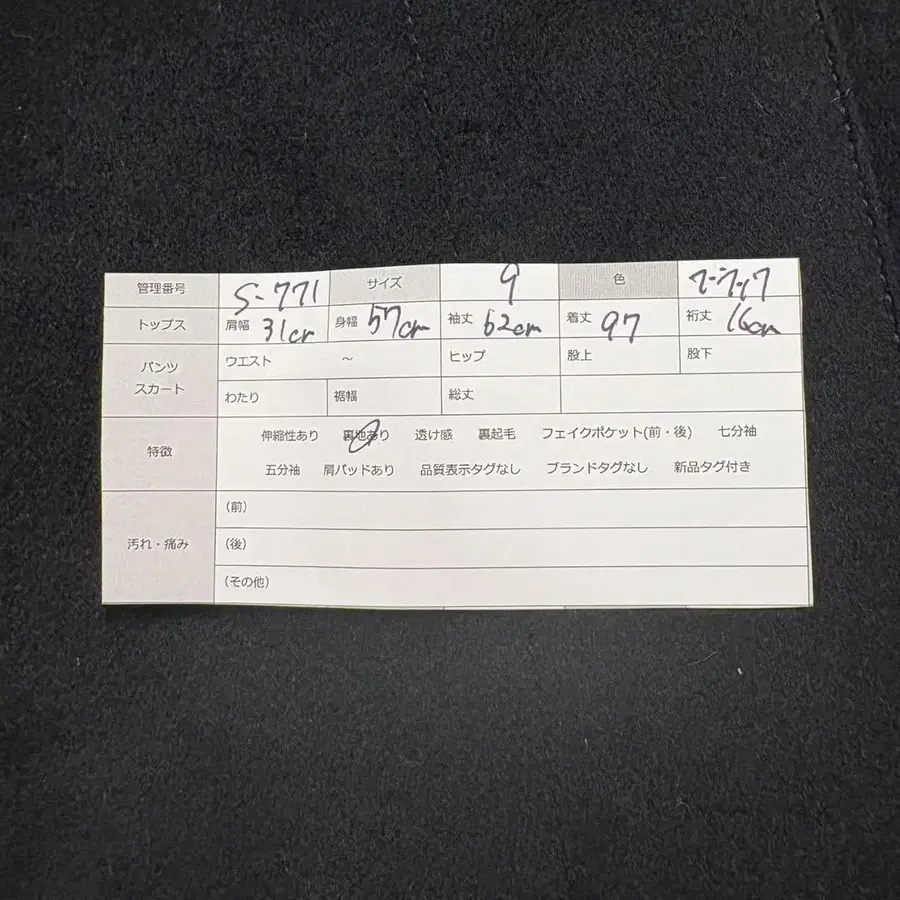 管理番号 S-771 サイズ 9 色 ブラック
トップス 肩幅 31cm 身幅 57cm 袖丈 62cm 着丈 97 裄丈 16cm
パンツ スカート ウエスト ～ ヒップ 股上 股下
わたり 裾幅 総丈
特徴 伸縮性あり 裏地あり 透け感 裏起毛 フェイクポケット(前・後) 七分袖
五分袖 肩パッドあり 品質表示タグなし ブランドタグなし 新品タグ付き
汚れ・痛み (前)
(後)
(その他)